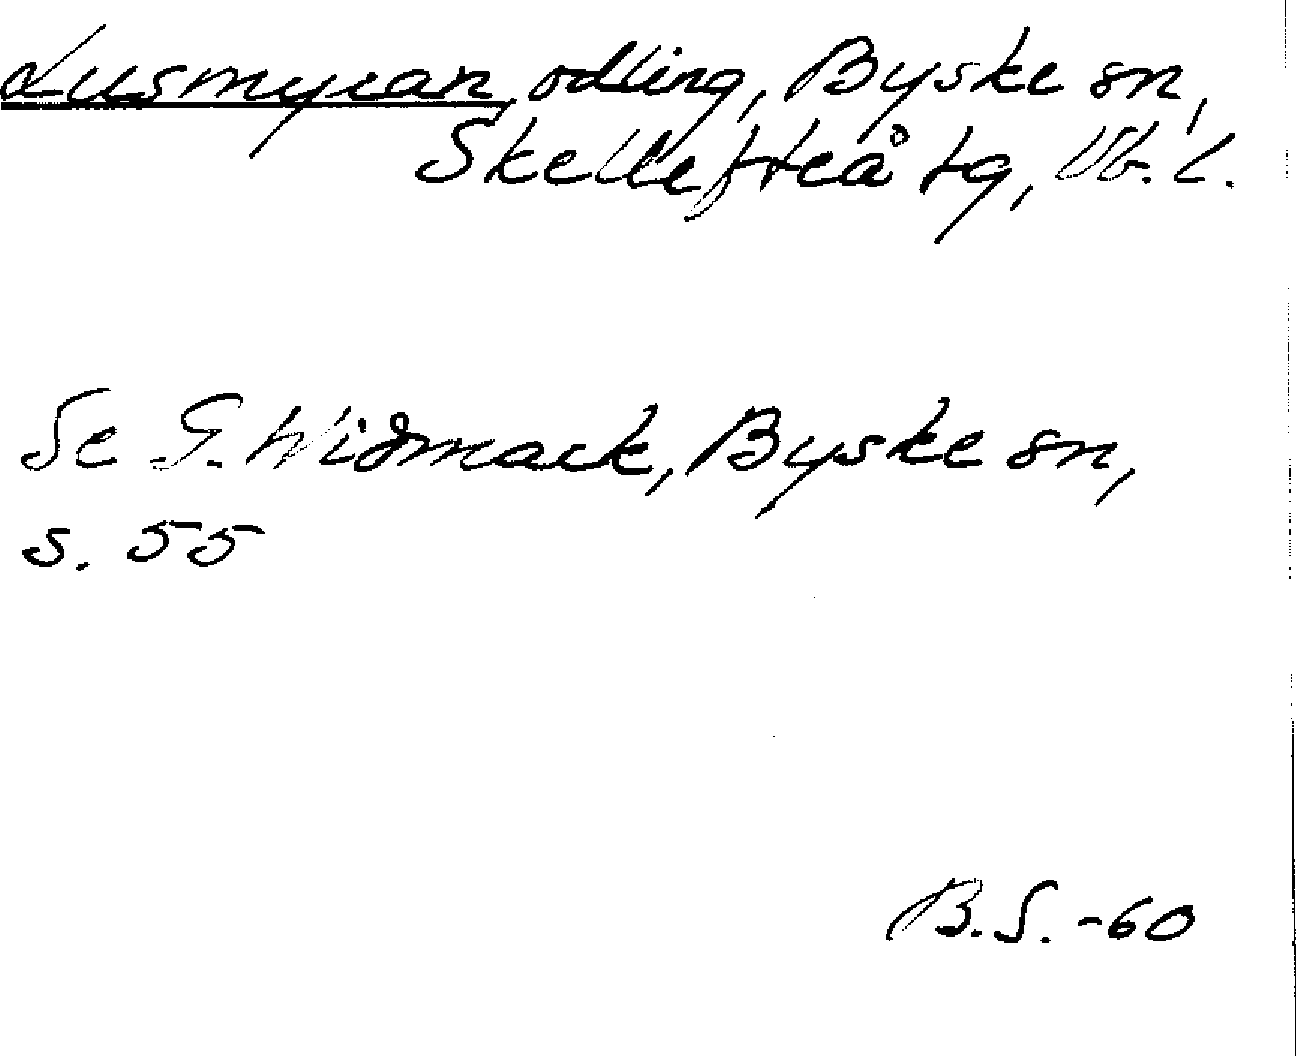 Lusmyran, odling, Byske sn,
Skellefteå tg, Vb. l.
Se G. Widmack, Byske sn,
s. 55
B.S. -60